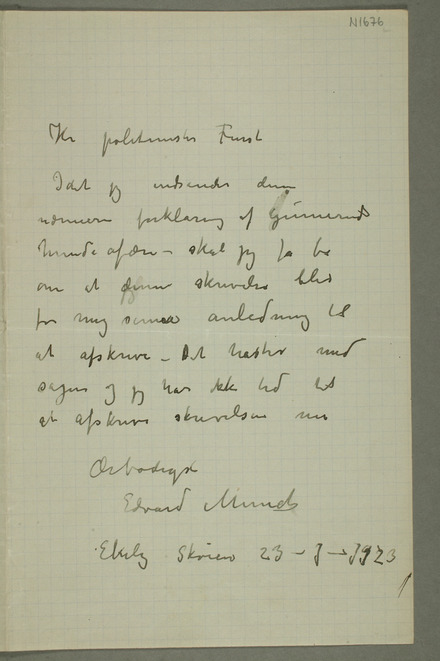 N1676
Hr politimester Furst
Idet jeg indsender den
nærmere forklaring af Gunneruds
hundeafære – skal jeg få be
om at denne skrivelse blir
for mig senere anledning til
at afskrive – Det haster med
sagen og jeg har ikke tid til
at afskrive skrivelsen nu
Ærbødigst
Edvard Munch
Ekely Skøien 23 – 1 – 1923